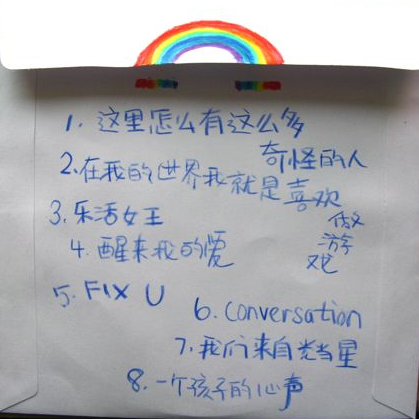 1. 这里怎么有这么多
奇怪的人
2. 在我的世界我就是喜欢
做
游
戏
3. 乐活女王
4. 醒来我的爱
5. FIX U
6. Conversation
7. 我们来自岂当星
8. 一个孩子的心声